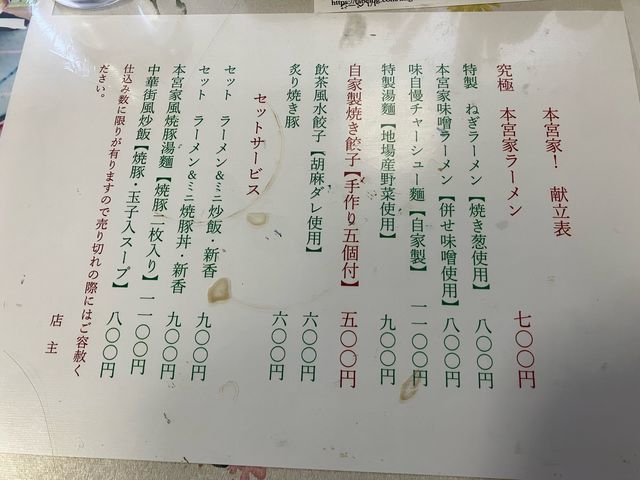 本宮家！　献立表
究極　本宮家ラーメン　七〇〇円
特製　ねぎラーメン【焼き葱使用】　八〇〇円
本宮家味噌ラーメン【併せ味噌使用】　八〇〇円
味自慢チャーシュー麺【自家製】　一一〇〇円
特製湯麺【地場産野菜使用】　九〇〇円
自家製焼き餃子【手作り五個付】　五〇〇円
飲茶風水餃子【胡麻ダレ使用】　六〇〇円
炙り焼き豚　六〇〇円
セットサービス
セット　ラーメン&ミニ炒飯・新香　九〇〇円
セット　ラーメン&ミニ焼豚丼・新香　九〇〇円
本宮家風焼豚湯麺【焼豚二枚入り】　一一〇〇円
中華街風炒飯【焼豚・玉子入スープ】　八〇〇円
仕込み数に限りが有りますので売り切れの際にはご容赦く
ださい。
店　主